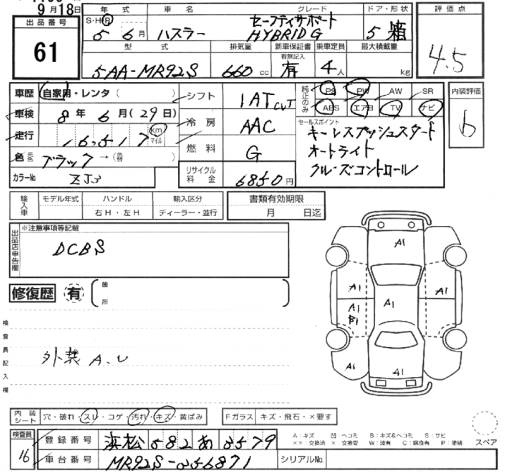 9月18日
出品番号 61
年式 車名 グレード ドア・形状 評価点
S・H・R 5 6月 ハスラー セーフティサポート HYBRID G 5 箱 4.5
型式 排気量 新車保証書 乗車定員 最大積載量
有無記入
5AA-MR92S 660cc 有 4人 kg
車歴 自家用・レンタ シフト 1AT CVT 純正のみ PS PW AW SR 内装評価
ABS エアB TV ナビ
車検 8年6月(29日) 冷房 AAC セールスポイント b
走行 16517 Km マイル キーレスプッシュスタート
燃料 G オートライト
色 ブラック クルーズコントロール
カラーNo. ZJ3 リサイクル料金 6850円
輸入車 モデル年式 ハンドル 輸入区分 書類有効期限
右H・左H ディーラー・並行 月 日迄
出品店申告欄 ※注意事項等記載
DCBS
修復歴 有 箇所
検査員記入欄
外装 A.U
A1
A1
A1 A1 A1
B1
A1 A1 A1
内装シート 穴・破れ・スレ・コゲ・汚れ・キズ・黄ばみ Fガラス キズ・飛石・×要す
検査員 16
登録番号 浜松 582 あ 3579
車台番号 MR92S-256871 シリアルNo.
スペア